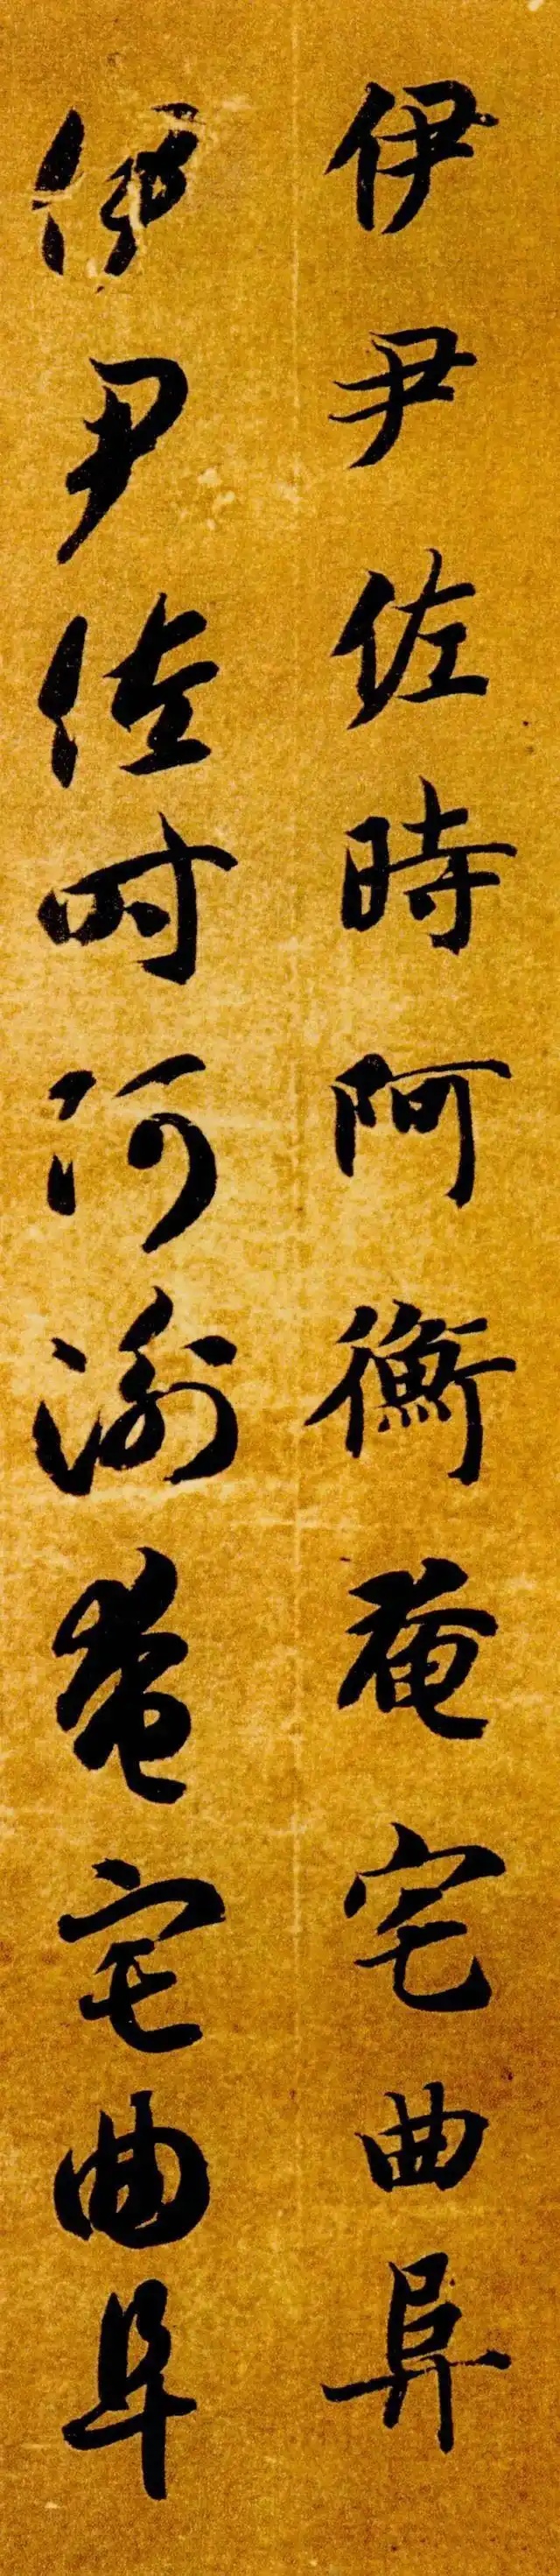 伊尹佐時阿衡奄宅曲阜
伊尹佐时阿衡奄宅曲阜